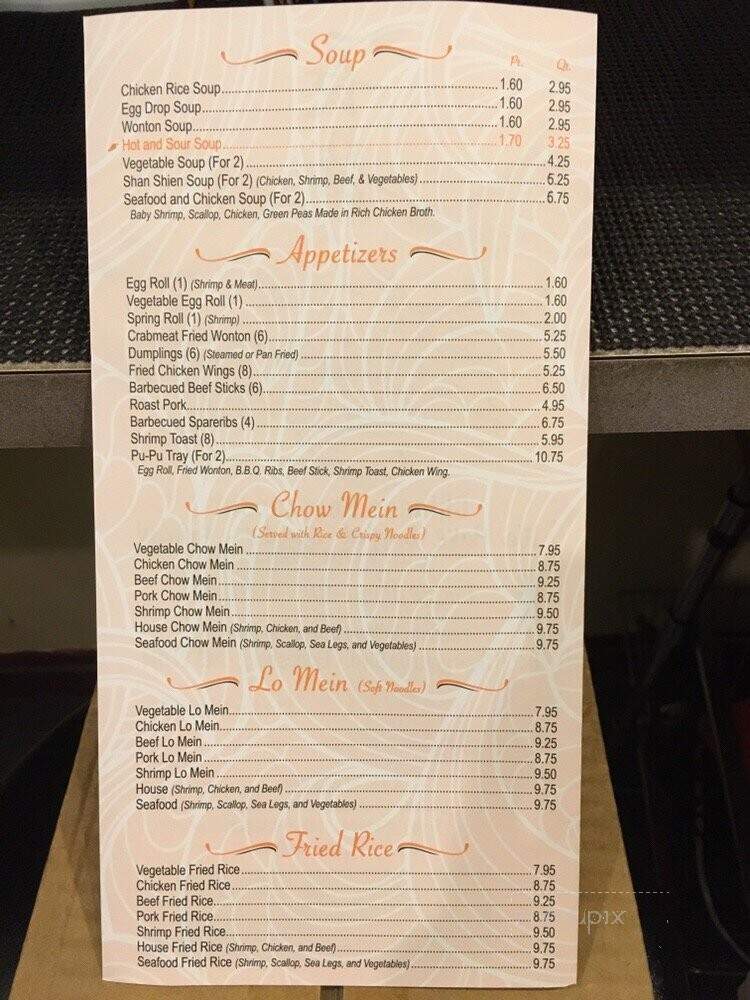 Soup
Pt. Qt.
Chicken Rice Soup 1.60 2.95
Egg Drop Soup 1.60 2.95
Wonton Soup 1.60 2.95
Hot and Sour Soup 1.70 3.25
Vegetable Soup (For 2) 4.25
Shan Shien Soup (For 2) (Chicken, Shrimp, Beef, & Vegetables) 5.25
Seafood and Chicken Soup (For 2) 6.75
Baby Shrimp, Scallop, Chicken, Green Peas Made in Rich Chicken Broth.
Appetizers
Egg Roll (1) (Shrimp & Meat) 1.60
Vegetable Egg Roll (1) 1.60
Spring Roll (1) (Shrimp) 2.00
Crabmeat Fried Wonton (6) 5.25
Dumplings (6) (Steamed or Pan Fried) 5.50
Fried Chicken Wings (8) 5.25
Barbecued Beef Sticks (6) 6.50
Roast Pork 4.95
Barbecued Spareribs (4) 6.75
Shrimp Toast (8) 5.95
Pu-Pu Tray (For 2) 10.75
Egg Roll, Fried Wonton, B.B.Q. Ribs, Beef Stick, Shrimp Toast, Chicken Wing.
Chow Mein
(Served with Rice & Crispy Noodles)
Vegetable Chow Mein 7.95
Chicken Chow Mein 8.75
Beef Chow Mein 9.25
Pork Chow Mein 8.75
Shrimp Chow Mein 9.50
House Chow Mein (Shrimp, Chicken, and Beef) 9.75
Seafood Chow Mein (Shrimp, Scallop, Sea Legs, and Vegetables) 9.75
Lo Mein (Soft Noodles)
Vegetable Lo Mein 7.95
Chicken Lo Mein 8.75
Beef Lo Mein 9.25
Pork Lo Mein 8.75
Shrimp Lo Mein 9.50
House (Shrimp, Chicken, and Beef) 9.75
Seafood (Shrimp, Scallop, Sea Legs, and Vegetables) 9.75
Fried Rice
Vegetable Fried Rice 7.95
Chicken Fried Rice 8.75
Beef Fried Rice 9.25
Pork Fried Rice 8.75
Shrimp Fried Rice 9.50
House Fried Rice (Shrimp, Chicken, and Beef) 9.75
Seafood Fried Rice (Shrimp, Scallop, Sea Legs, and Vegetables) 9.75